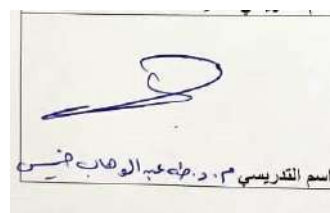 اسم التدريسي م.د. طه عبد الوهاب خميس